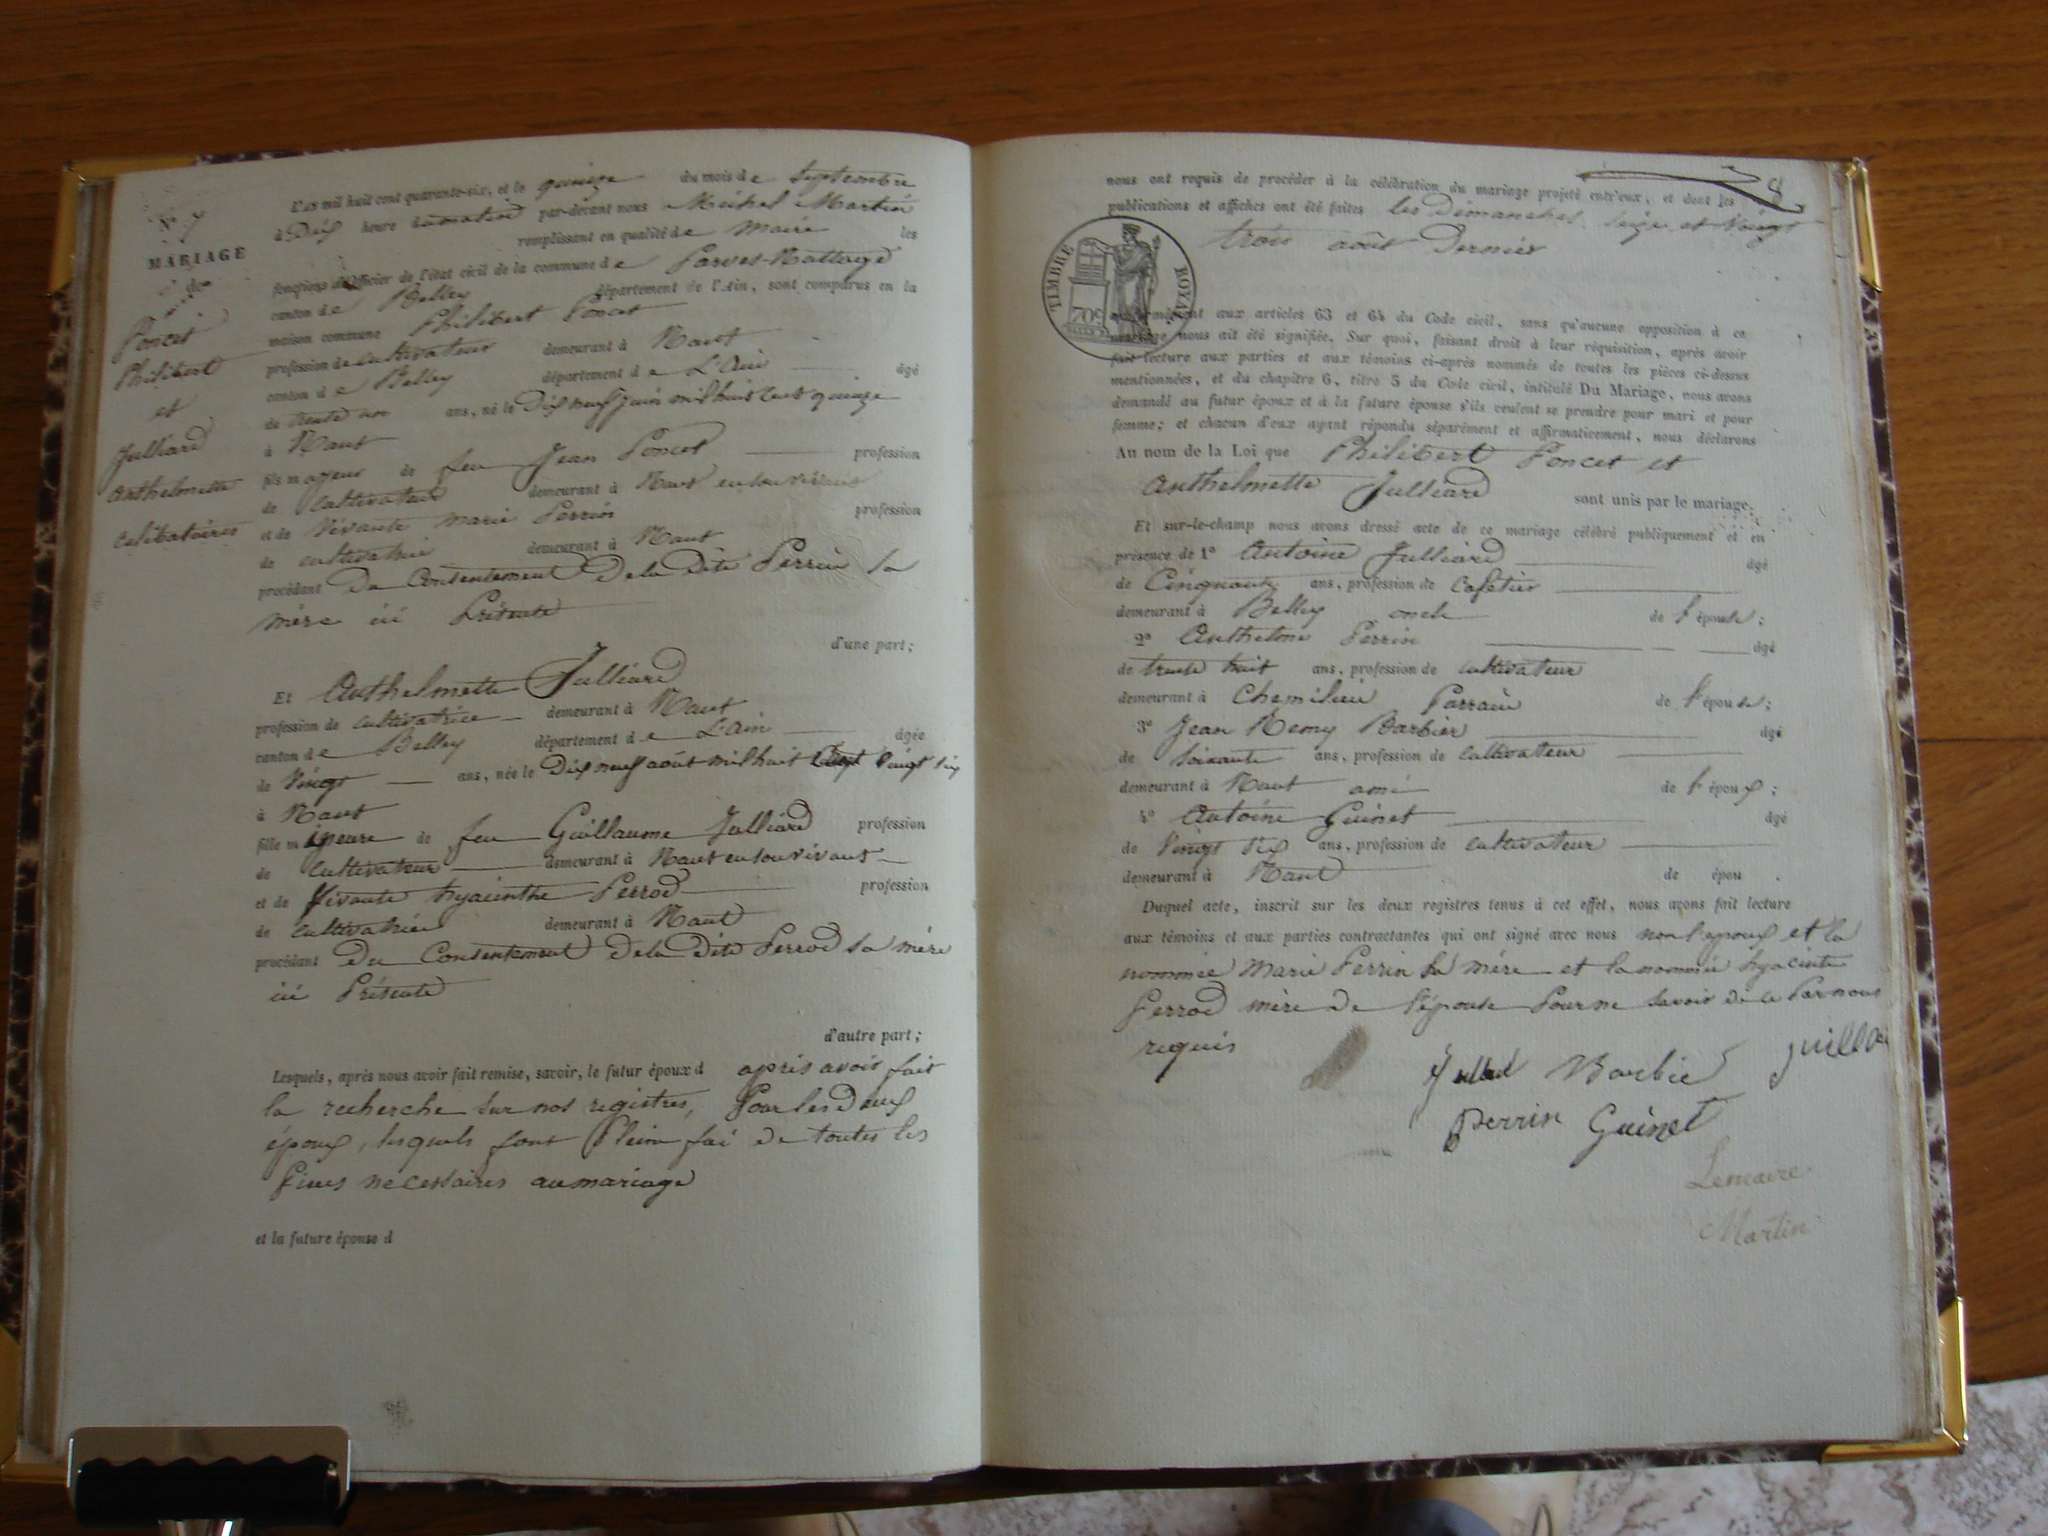 N° 7
MARIAGE
de
Poncet
Philibert
et
Julliard
Anthelmette
celibataires
L'an mil huit cent quarante-six, et le quinze du mois de septembre
à Dix heure du matin par-devant nous Michel Martin
remplissant en qualité de maire les
fonctions d'officier de l'état civil de la commune de Parves-Nattage
canton de Belley département de l'Ain, sont comparus en la
maison commune Philibert Poncet
profession de cultivateur demeurant à Nant
canton de Belley département de L'Ain âgé
de trente un ans, né le Dix neuf juin mil huit cent quinze
à Nant
fils majeur de feu Jean Poncet profession
de cultivateur demeurant à Nant en son vivant
et de vivante marie Perrin profession
de cultivatrice demeurant à Nant
procédant Du Consentement De la Dite Perrin sa
mère ici Présente
d'une part;
Et Anthelmette Julliard
profession de cultivatrice demeurant à Nant
canton de Belley département de L'Ain âgée
de Vingt ans, née le Dix neuf août mil huit Cent Vingt six
à Nant
fille mineure de feu Guillaume Julliard profession
de Cultivateur demeurant à Nant en son vivant
et de Vivante hyacinthe Perrod profession
de cultivatrice demeurant à Nant
procédant Du Consentement De la Dite Perrod sa mère
ici Présente
d'autre part;
Lesquels, après nous avoir fait remise, savoir, le futur époux d après avoir fait
la recherche sur nos registres, Pour les Deux
époux, lesquels font Pleine foi de toutes les
Pièces necessaires au mariage
et la future épouse d
8
nous ont requis de procéder à la célébration du mariage projeté entr'eux, et dont les
publications et affiches ont été faites les Dimanches seize et Vingt
trois août Dernier
TIMBRE ROYAL
70c
conformément aux articles 63 et 64 du Code civil, sans qu'aucune opposition à ce
mariage nous ait été signifiée. Sur quoi, faisant droit à leur réquisition, après avoir
fait lecture aux parties et aux témoins ci-après nommés de toutes les pièces ci-dessus
mentionnées, et du chapitre 6, titre 5 du Code civil, intitulé Du Mariage, nous avons
demandé au futur époux et à la future épouse s'ils veulent se prendre pour mari et pour
femme; et chacun d'eux ayant répondu séparément et affirmativement, nous déclarons
Au nom de la Loi que Philibert Poncet et
Anthelmette Julliard sont unis par le mariage.
Et sur-le-champ nous avons dressé acte de ce mariage célébré publiquement et en
présence de 1° Antoine Julliard âgé
de Cinquante ans, profession de Cafetier
demeurant à Belley oncle de l'épouse;
2° Anthelme Perrin âgé
de trente huit ans, profession de cultivateur
demeurant à Chemilieu Parrain de l'épouse;
3° Jean Remy Barbier âgé
de soixante ans, profession de cultivateur
demeurant à Nant ami de l'époux;
4° Antoine Guinet âgé
de Vingt six ans, profession de cultivateur
demeurant à Nant de épou .
Duquel acte, inscrit sur les deux registres tenus à cet effet, nous avons fait lecture
aux témoins et aux parties contractantes qui ont signé avec nous non l'epoux et la
nommée Marie Perrin sa mère et la nommée hyacinte
Perrod mère de l'épouse Pour ne savoir de ce Par nous
requis
Barbie
Perrin Guinet
Lemaire
Martin